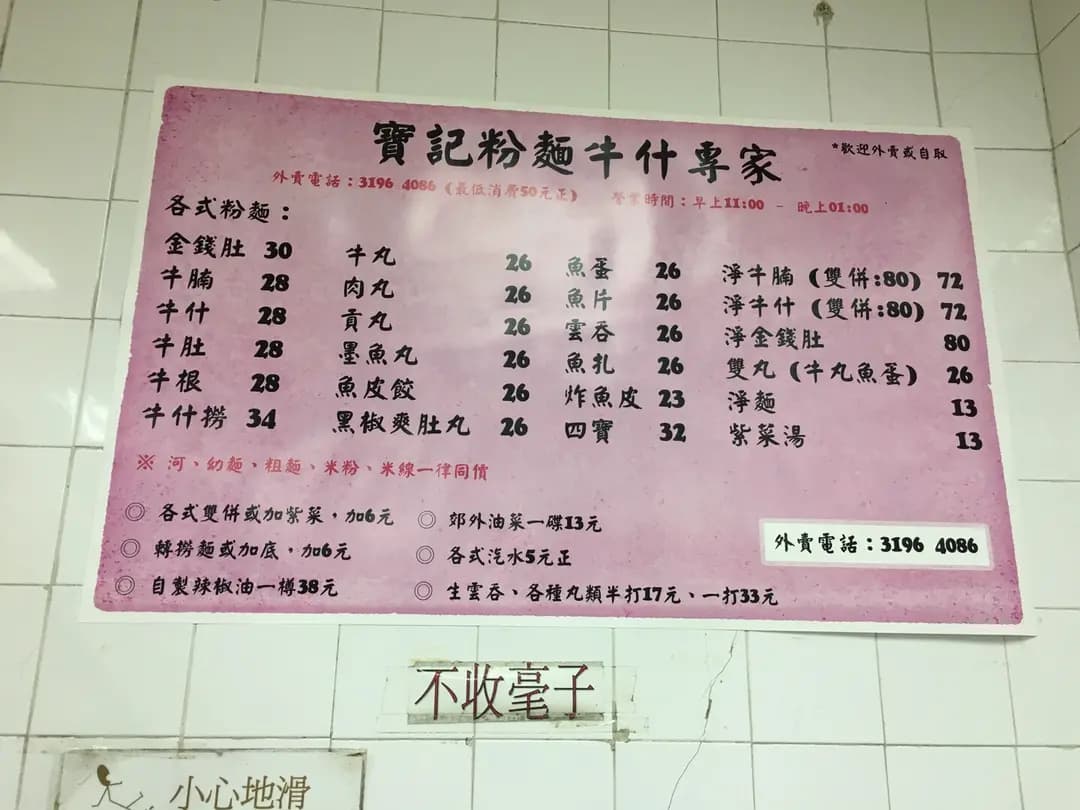 寶記粉麵牛什專家
*歡迎外賣或自取
外賣電話：3196 4086（最低消費50元正） 營業時間：早上11:00 - 晚上01:00
各式粉麵：
金錢肚 30
牛腩 28
牛什 28
牛肚 28
牛根 28
牛什撈 34
牛丸 26
肉丸 26
貢丸 26
墨魚丸 26
魚皮餃 26
黑椒爽肚丸 26
魚蛋 26
魚片 26
雲吞 26
魚扎 26
炸魚皮 23
四寶 32
淨牛腩（雙併:80） 72
淨牛什（雙併:80） 72
淨金錢肚 80
雙丸（牛丸魚蛋） 26
淨麵 13
紫菜湯 13
※ 河、幼麵、粗麵、米粉、米線一律同價
◎ 各式雙併或加紫菜，加6元
◎ 轉撈麵或加底，加6元
◎ 自製辣椒油一樽38元
◎ 郊外油菜一碟13元
◎ 各式汽水5元正
◎ 生雲吞、各種丸類半打17元、一打33元
外賣電話：3196 4086
不收毫子
小心地滑